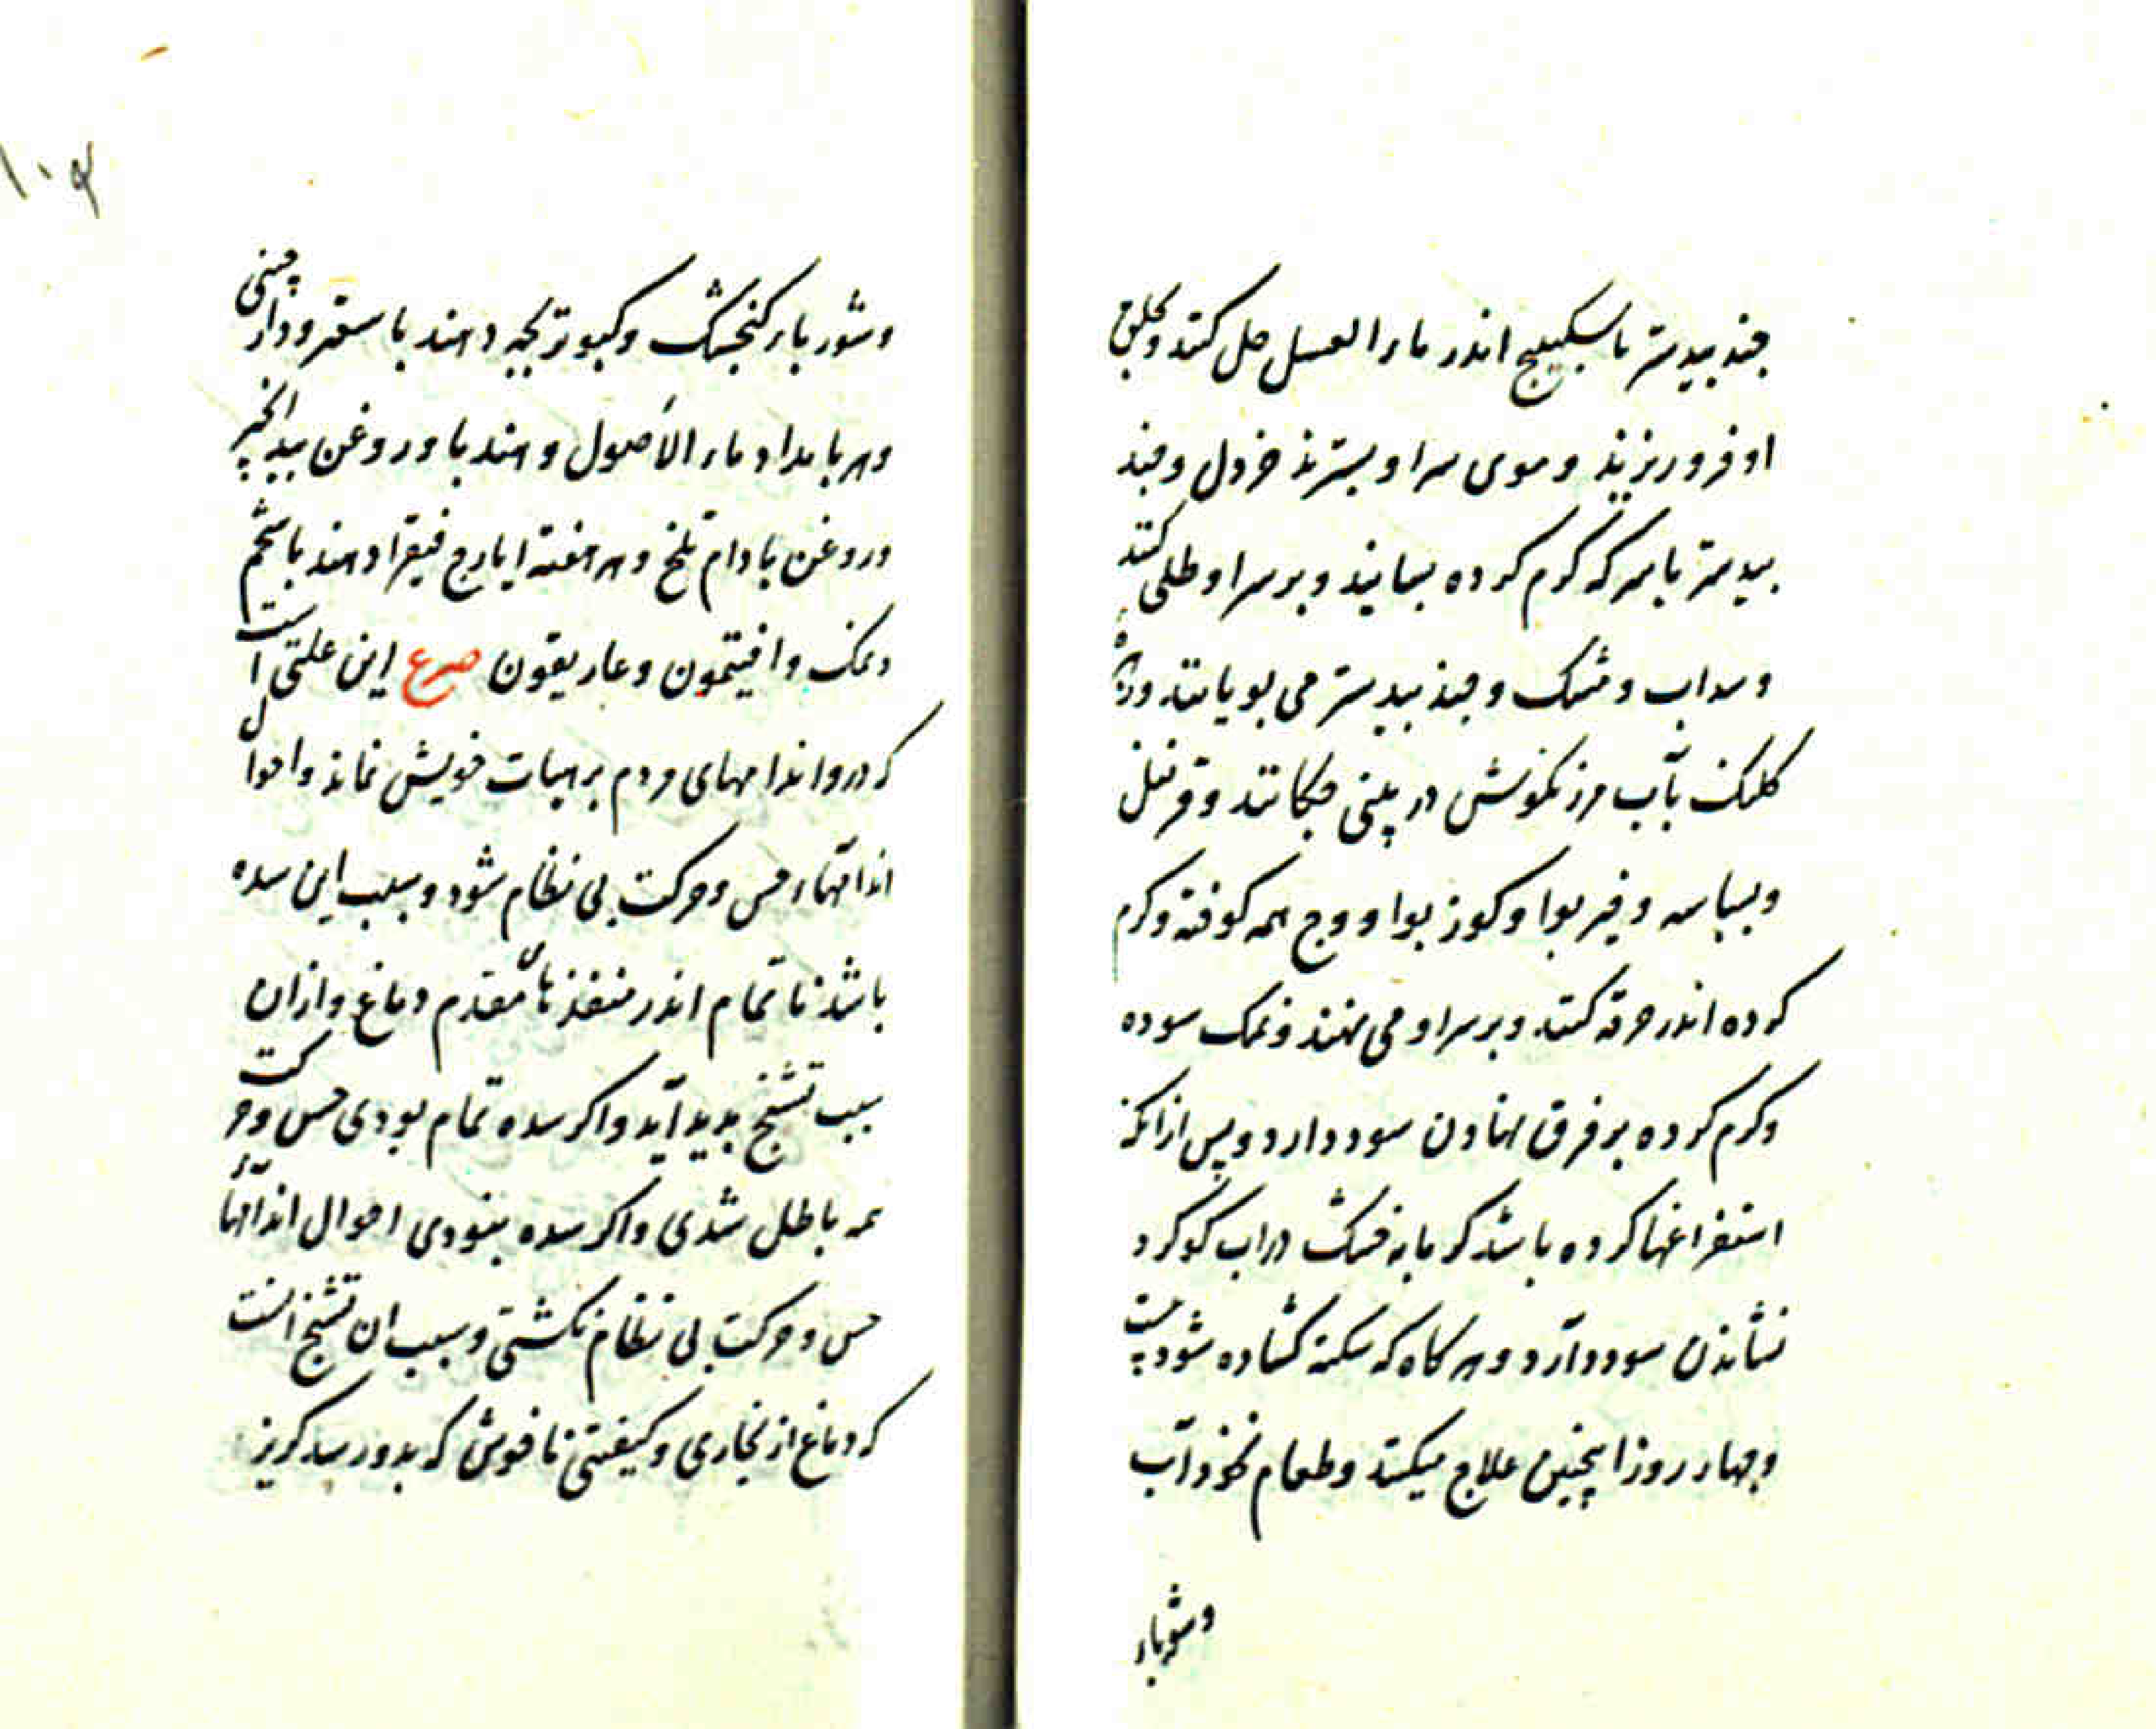 جندبیدستر با سکبینج اندر ماء العسل حل کنند و بحلق
او فرو ریزند و موی سر او بسترند خردل و جند
بیدستر با سرکه گرم کرده بسایند و بر سر او طلی کنند
و سداب و مشک و جندبیدستر می بویانند و زهره
کلنک بآب مرزنکوش در بینی چکانند و قرنفل
و بسباسه و قیربوا و کوزبوا و وج همه کوفته و کرم
کرده اندر خرقه کنند و بر سر او می نهند و نمک سوده
و کرم کرده بر فرق نهادن سود دارد و پس از انکه
استفراغها کرده باشد کرمابه خشک در اب کوکرد
نشاندن سود دارد و هرکاه که سکته کشاده شود بیست
و چهار روز اینچنین علاج میکنند و طعام نخود آب
و شورباء
۱۰۴
و شورباء کنجشک و کبوتر بچه دهند با سعتر و دارچینی
و هر بامداد ماء الاصول دهند با و روغن بیدانجیر
و روغن بادام تلخ و هر هفته ایارج فیقرا دهند با شحم
و نمک و افیتمون و غاریقون صرع این علتی است
که درو اندامهای مردم بر هیات خویش نماند و احوال
اندامهاء حس و حرکت بی نظام شود و سبب این سده
باشد نا تمام اندر منفذهای مقدم دماغ و ازان
سبب تشنج بدید آید و اکر سده تمام بودی حس و حرکت
همه باطل شدی و اکر سده نبودی احوال اندامهاء
حس و حرکت بی نظام نکشتی و سبب ان تشنج انست
که دماغ از بخاری و کیفیتی ناخوش که بدو رسد کریز